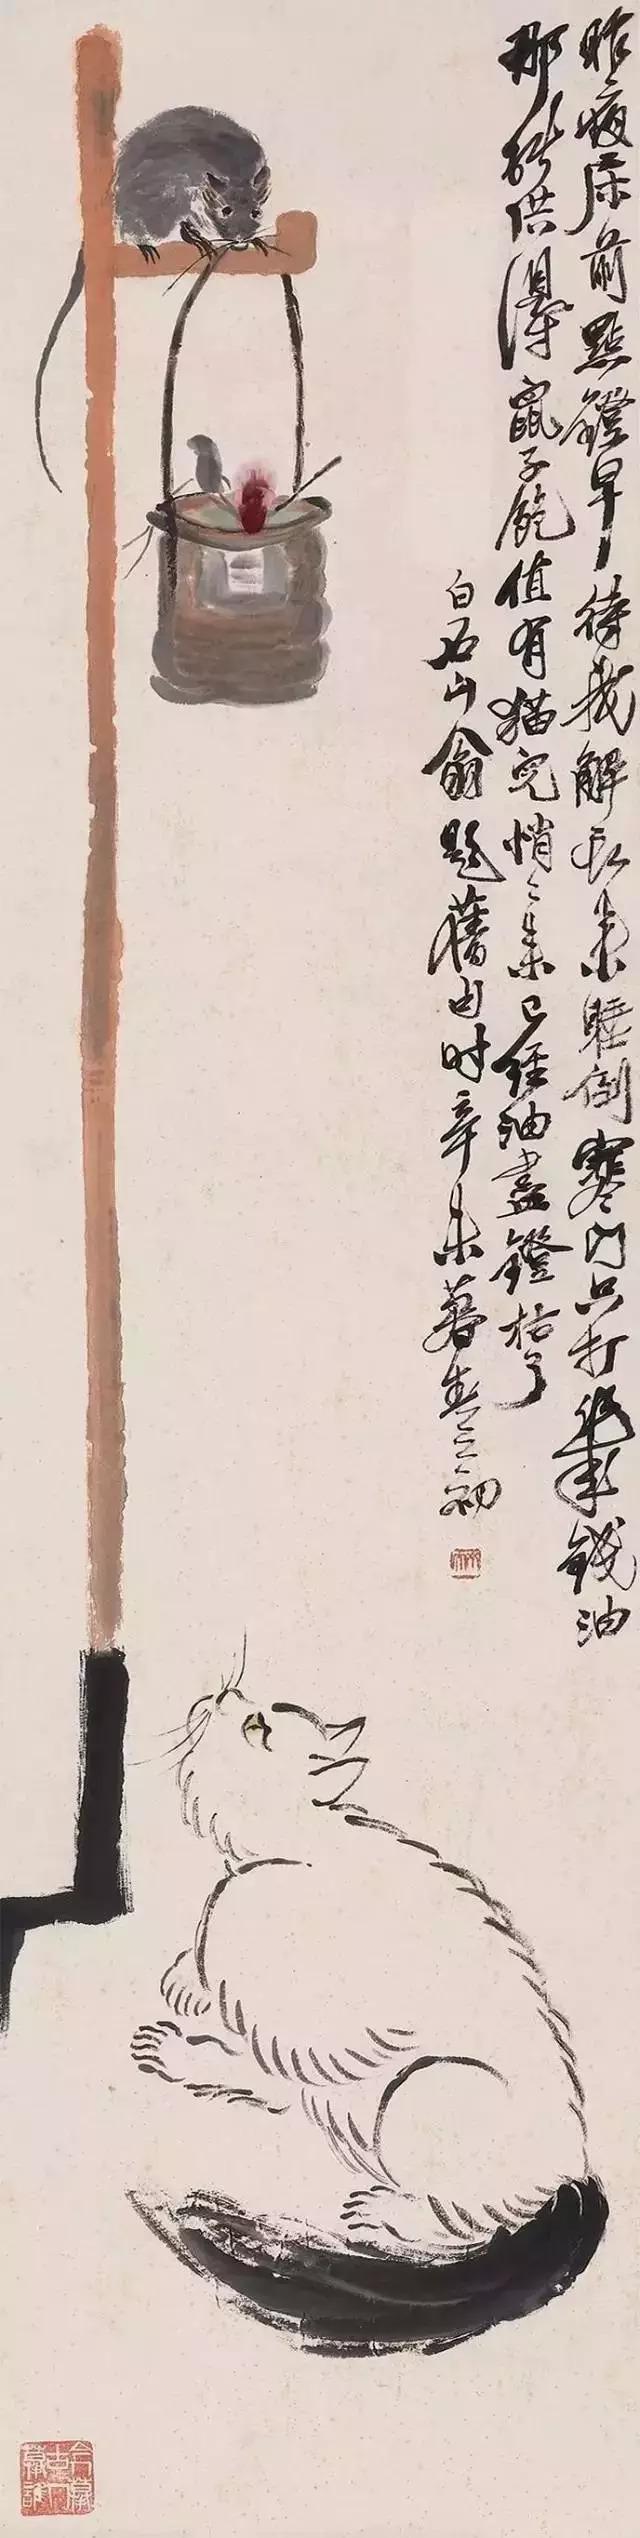 昨夜床前點鐙早待我解衣來睡倒寒門只打幾錢油
那能供得鼠子飽值有猫兒悄〻來已經油盡鐙枯了
白石山翁題舊句时辛未暮春之初